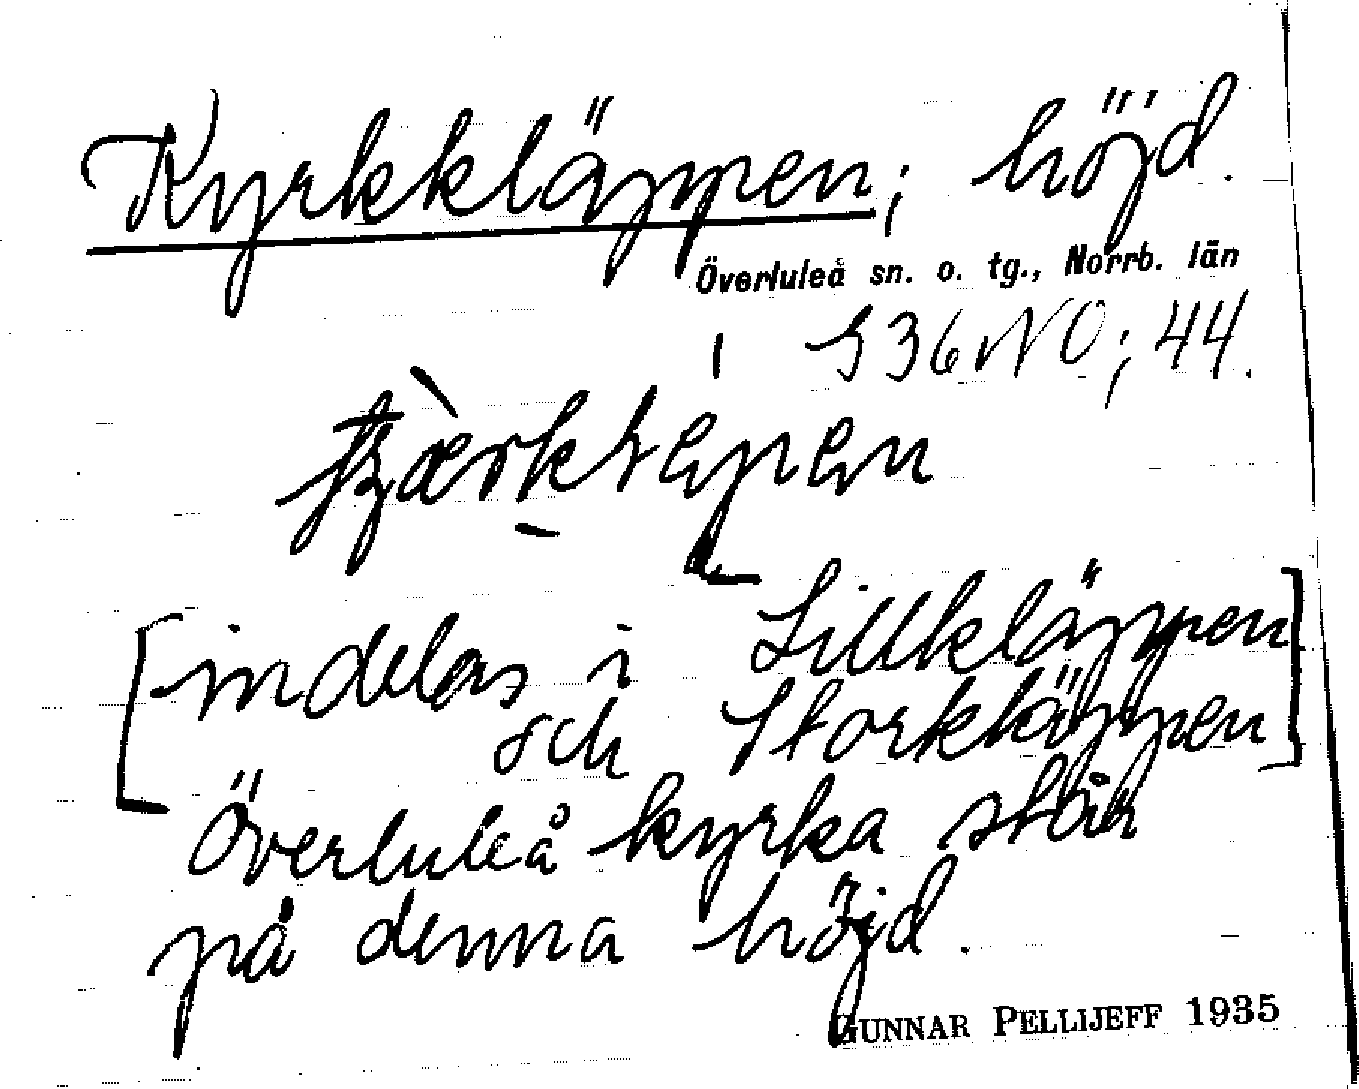 Kyrkkläppen; höjd.
Överluleå sn. o. tg., Norrb. län
i S36NO; 44.
[indelas i Lillkläppen
och Storkläppen]
Överluleå kyrka står
på denna höjd.
GUNNAR PELLIJEFF 1935